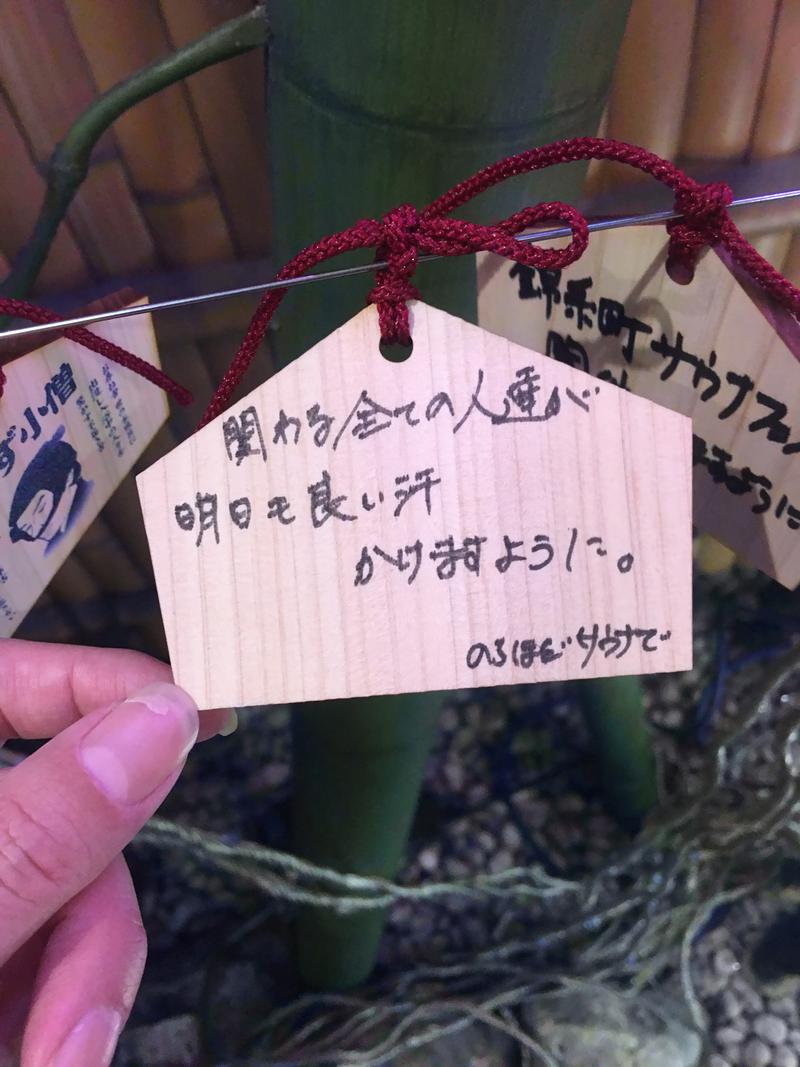 ず小僧
関わる全ての人達が
明日も良い汗
かけますように。
サウナで
錦糸町サウナフェ
ように